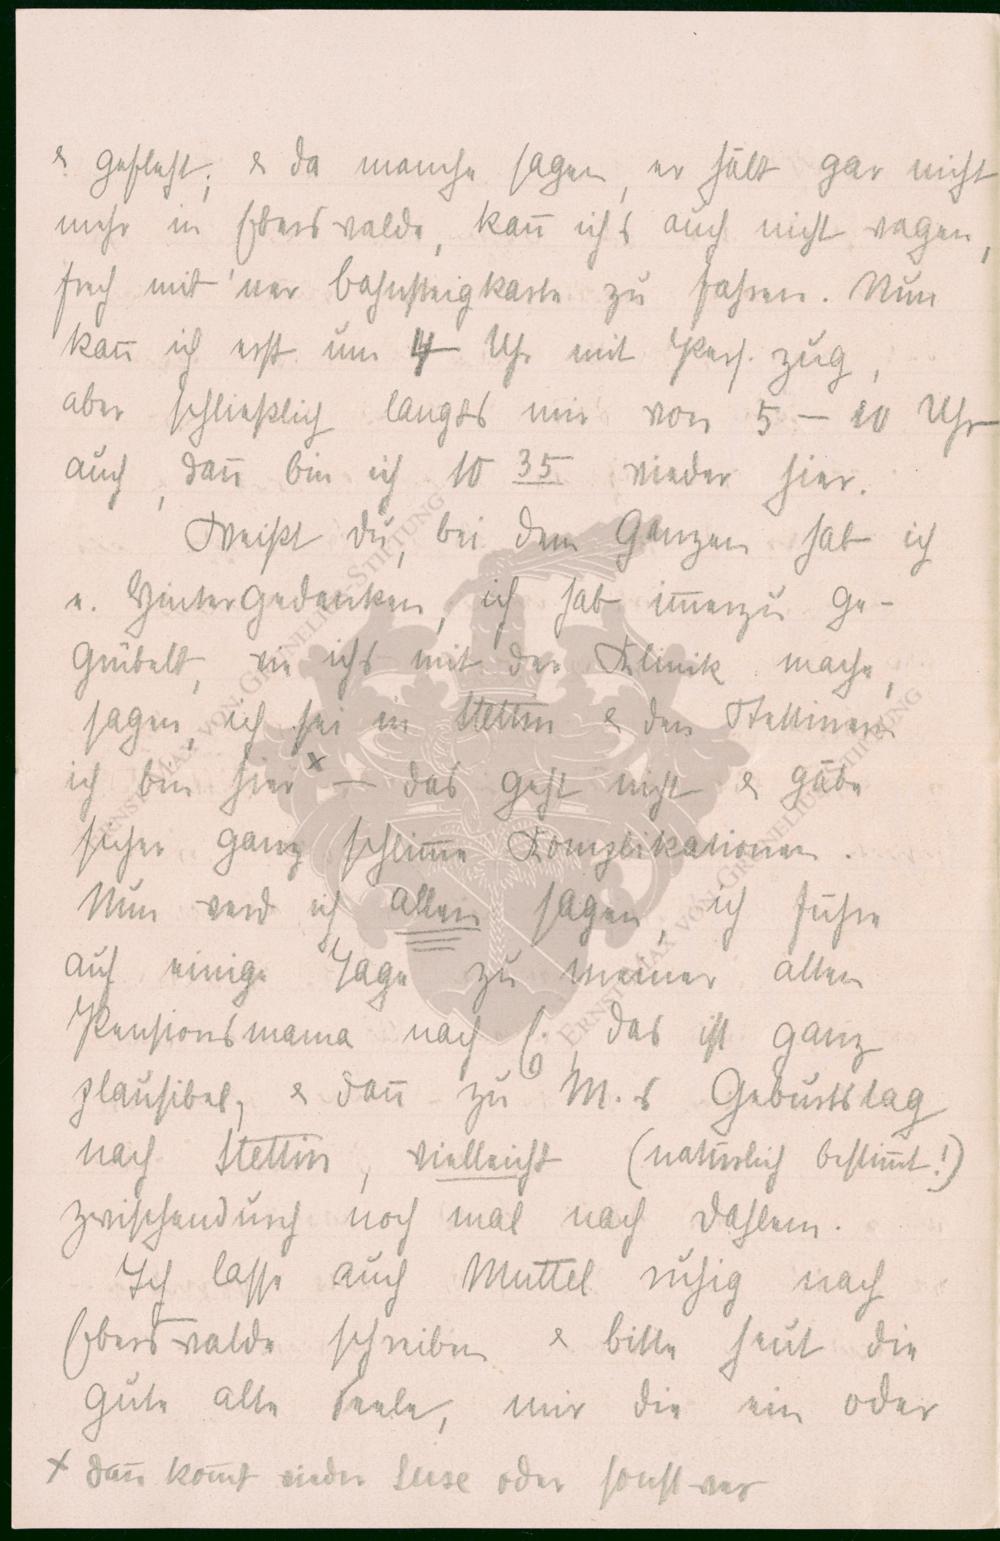 & gefleht; & da manche sagen, er hält gar nicht
mehr in Eberswalde, kan̄ ich's auch nicht wagen,
frech mit 'ner Bahnsteigkarte zu fahren. Nun
kan̄ ich erst um 4 Uhr mit Pers. zug,
aber schließlich langts mir von 5 – 10 Uhr
auch, dan̄ bin ich 10 35 wieder hier.
Weißt du, bei dem Ganzen hab ich
e. Hintergedanken, ich hab im̄erzu ge-
grübelt, wie ichs mit der Klinik mache,
sagen, ich sei in Stettin & den Stettinern
ich bin hier x – das geht nicht & gäbe
sicher ganz schlim̄e Komplikationen.
Nun werd ich allen sagen, ich führe
auf einige Tage zu meiner alten
Pensionsmama nach E., das ist ganz
plausibel, & dan̄ zu M.s Geburtstag
nach Stettin, vielleicht (natürlich bestim̄t!)
zwischendurch noch mal nach Dahlem.
Ich lasse auch Muttel ruhig nach
Eberswalde schreiben & bitte heut die
gute alte Seele, mir die ein oder
x dan̄ kom̄t wieder Suse oder sonst wer
ERNST MAX VON GRUNELIUS-STIFTUNG
ERNST MAX VON GRUNELIUS-STIFTUNG